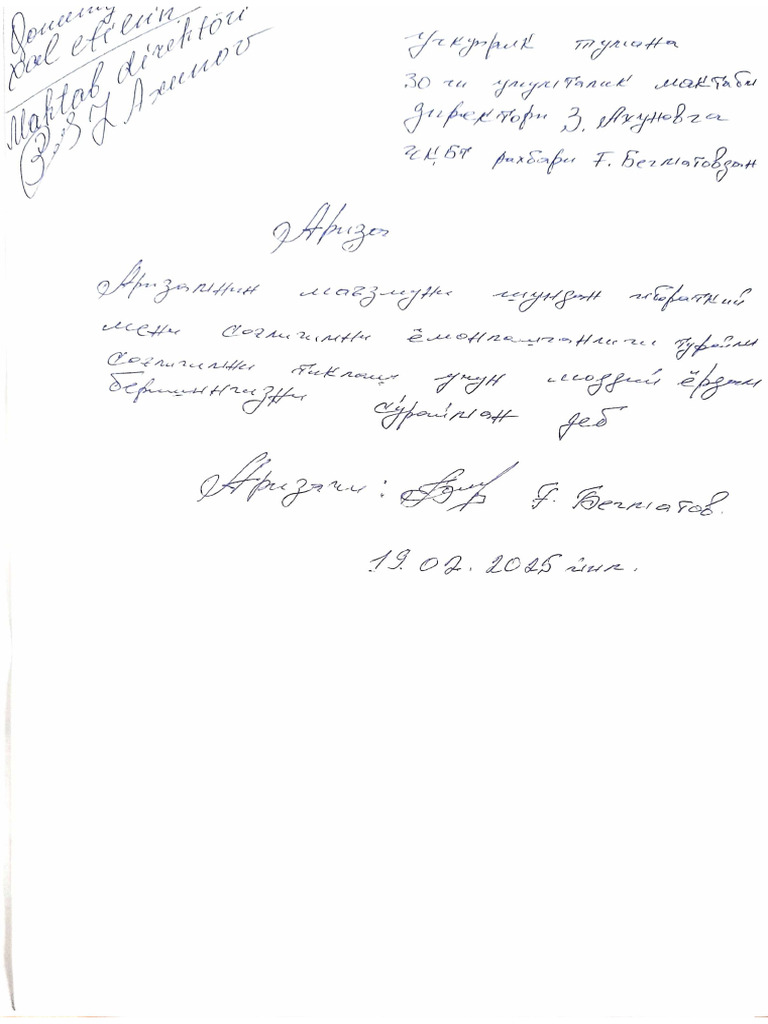 Qonuniy
xal etilsin
Maktab direktori
Z. Axunov
Учкуприк тумана
30 чи умумталик мактаби
директори З. Ахуновга
ЧҚБТ рахбари Ғ. Бегматовдан
Ариза
Аризамнин мазмуни шундан иборатким
мени соғлиғимни ёмонлашганлиги туфайли
соғлиғимни тиклаш учун моддий ёрдам
беришингизни сўрайман деб
Аризачи: Ғ. Бегматов.
19.02.2025 йил.